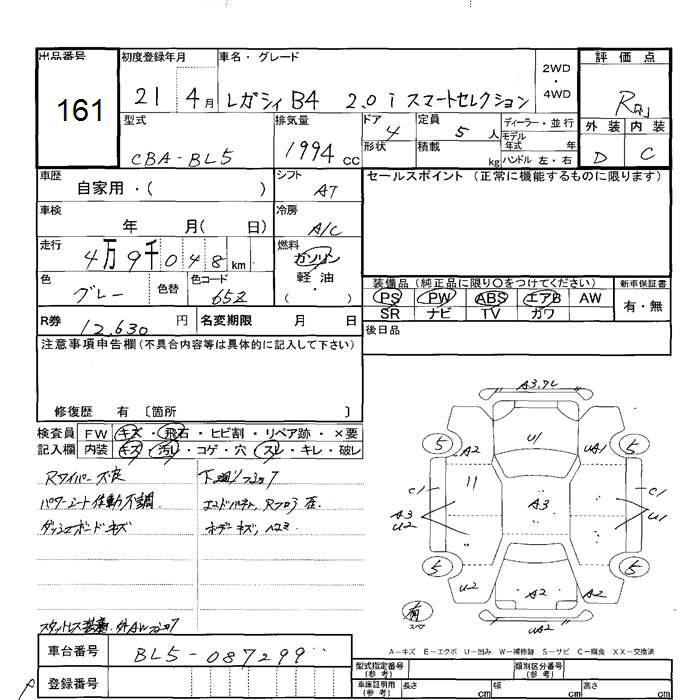 出品番号
161
初度登録年月
21 4月
車名・グレード
レガシィ B4 2.0i スマートセレクション
2WD
・
4WD
評価点
R
外装 内装
D C
型式
CBA-BL5
排気量
1994 cc
ドア
4
形状
定員
5 人
積載
kg
ディーラー・並行
モデル年式 年
ハンドル 左・右
車歴
自家用・( )
シフト
AT
セールスポイント (正常に機能するものに限ります)
車検
年 月( 日)
冷房
A/C
走行
4万9千048km
燃料
ガソリン
軽油
( ・ )
色
グレー
色替
色コード
652
装備品 (純正品に限り○をつけてください)
新車保証書
PS PW ABS エアB AW
SR ナビ TV ガワ
有・無
R券
12,630 円
名変期限 月 日
後日品
注意事項申告欄(不具合内容等は具体的に記入して下さい)
修復歴 有 〔箇所 〕
検査員
記入欄
FW キズ・飛石・ヒビ割・リペア跡・×要
内装 キズ・汚レ・コゲ・穴・スレ・キレ・破レ
Rワイパー不良
パワーシート作動不調
ダッシュボードキズ
下廻り
ボデーキズ、ヘコミ
スタットレス
A3.
U1
5
A2
UA1
5
11
C1
A3
U2
A3
C1
U1
5
5
U2
A2
A2
UA2
有
スペア
A-キズ E-エクボ U-凹み W-補修跡 S-サビ C-腐食 XX-交換済
車台番号
BL5-087299
登録番号
型式指定番号
(参考)
類別区分番号
(参考)
車庫証明用
(参考)
長さ cm
幅 cm
高さ cm